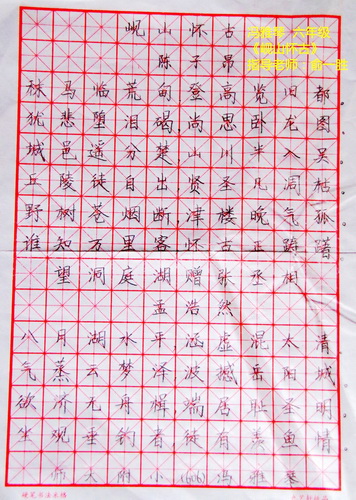 冯雅琴 六年级
《岘山怀古》
指导老师：俞一胜
岘山怀古
陈子昂
秣马临荒甸,登高览旧都
犹悲堕泪碣,尚思卧龙图
城邑遥分楚,山川半入吴
丘陵徒自出,贤圣凡凋枯
野树苍烟断,津楼晚气孤
谁知万里客,怀古正踌躇
望洞庭湖赠张丞相
孟浩然
八月湖水平,涵虚混太清
气蒸云梦泽,波撼岳阳城
欲济无舟楫,湍居耻圣明
坐观垂钓者,徒有羡鱼情
师大附小(606)冯雅琴